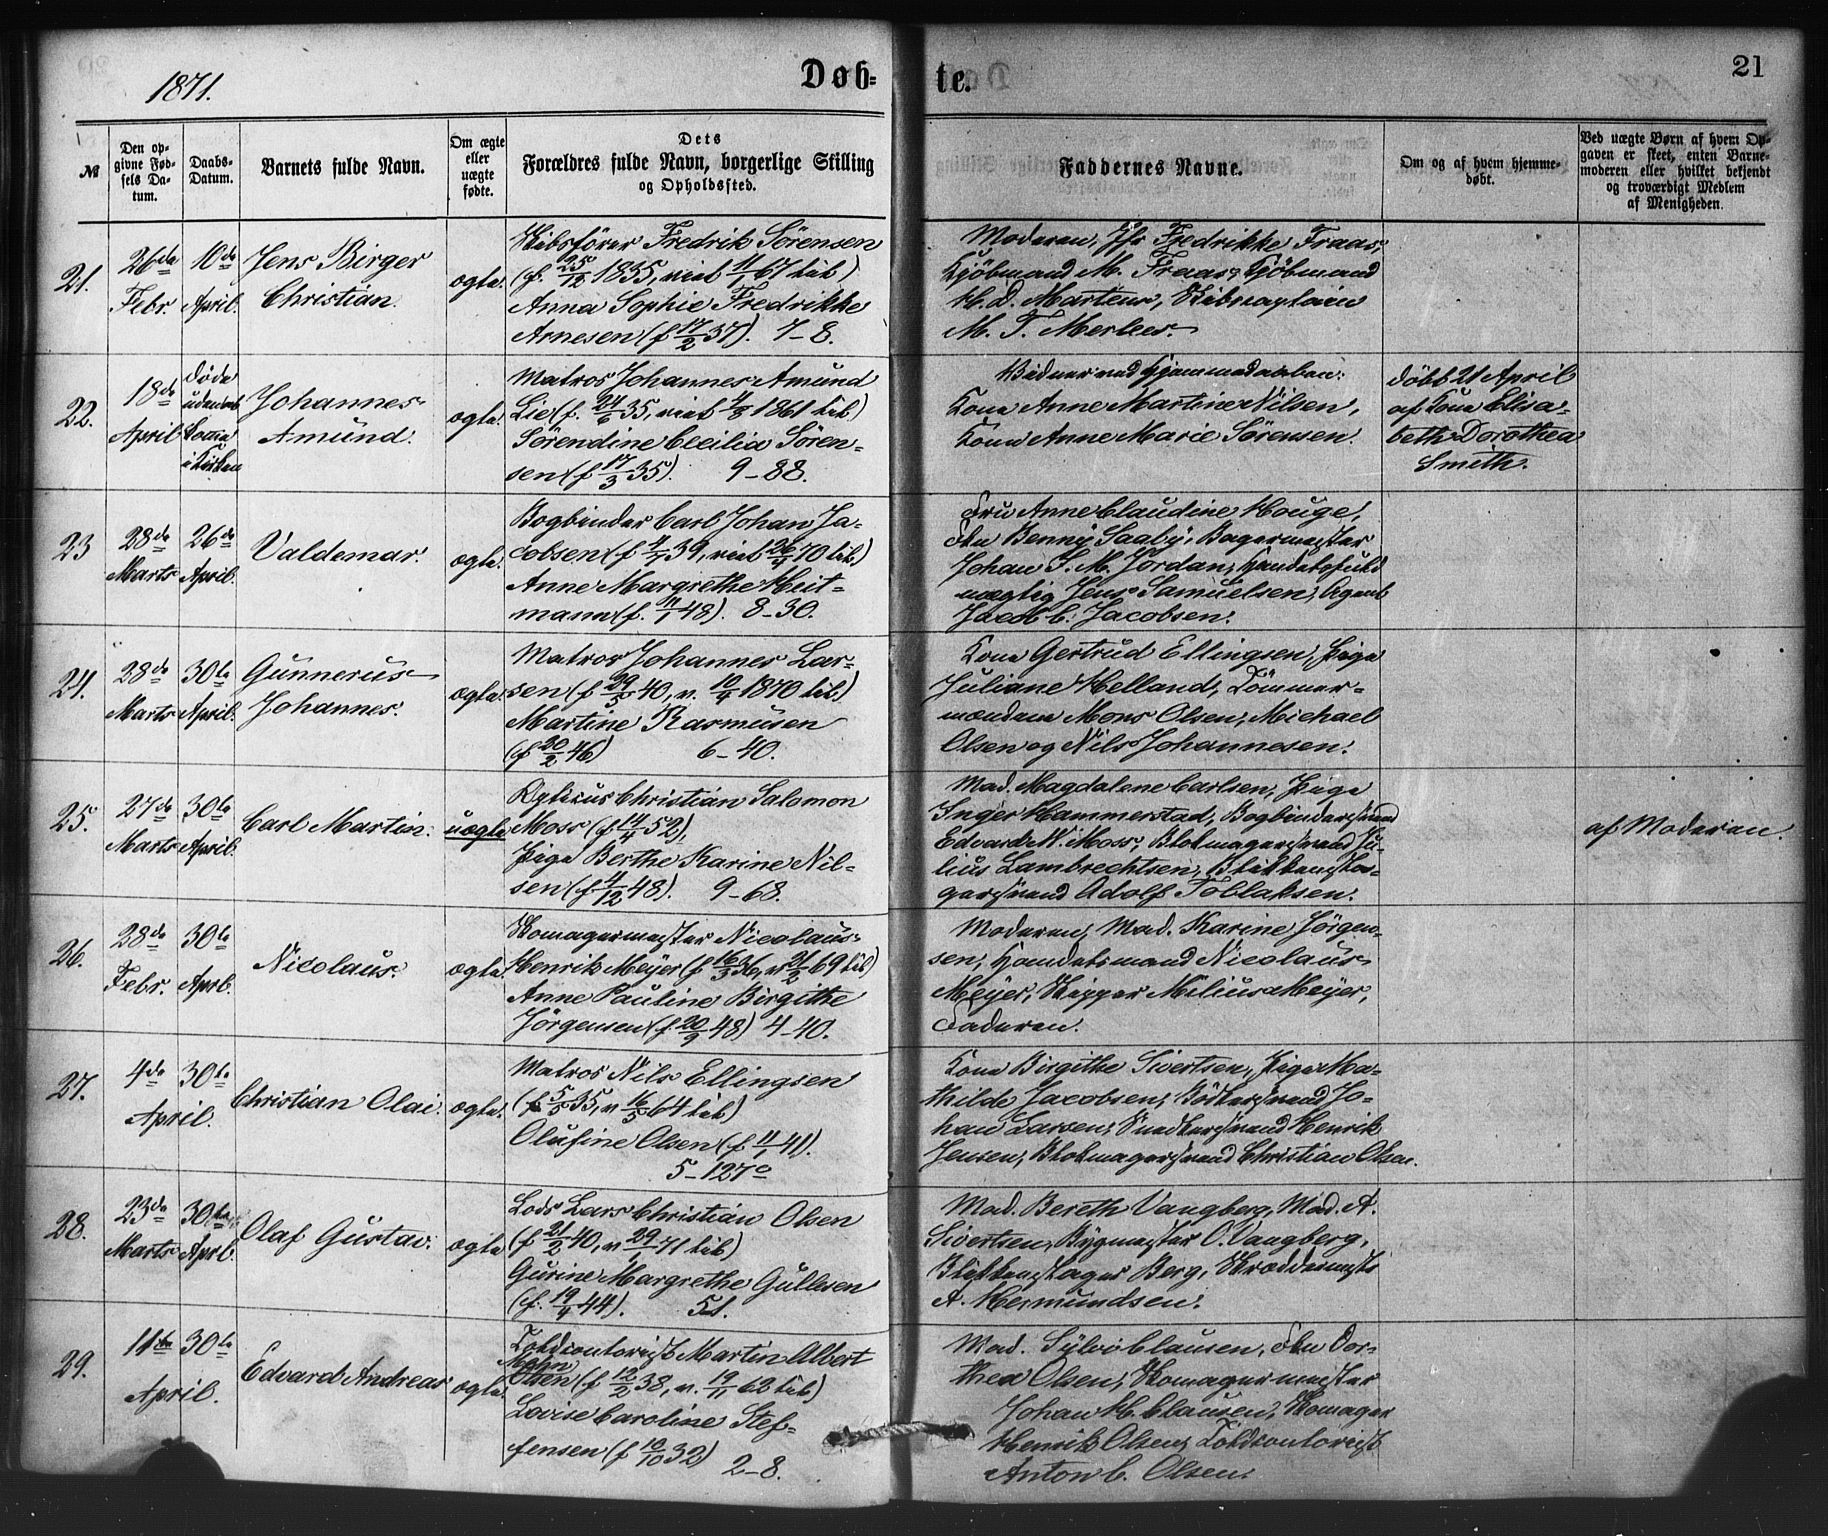 1871.
Døb-
te.
21
№
Den op-
givne Fød-
sels Da-
tum.
Daabs-
Datum.
Barnets fulde Navn.
Om ægte
eller
uægte
fødte.
Dets
Forældres fulde Navn, borgerlige Stilling
og Opholdssted.
Faddernes Navne.
Om og af hvem hjemme-
døbt.
Ved uægte Børn af hvem Op-
gaven er skeet, enten Barne-
moderen eller hvilket bekjendt
og troværdigt Medlem
af Menigheden.
21.
26de
Febr.
10de
April.
Jens Birger
Christian.
ægte.
Skibsfører Fredrik Sørensen
(f. 25/12 1835, viet 11/1 67 til)
Anna Sophie Fredrikke
Arnesen (f 17/2 37). 7-8.
Moderen, Jfr Fredrikke Fraas,
Kjöbmand M. Fraas, Kjöbmand
H. D. Martens, Skibscaptein
M. T. Merlees.
22.
18de
April
døde
udenat
komme
i Kirken
Johannes
Amund.
ægte.
Matros Johannes Amund
Lie (f. 24/6 35, viet 4/8 1861 til)
Sørendine Cecilia Søren-
sen (f 17/3 35). 9-88.
Vidner ved Hjemmedaaben:
Kone Anne Martine Nilsen,
Kone Anne Marie Sørensen.
døbt 21 April
af Kone Elisa-
beth Dorothea
Smith.
23
28de
Marts
26de
April.
Valdemar.
ægte.
Bogbinder Carl Johan Ja-
cobsen (f 4/7 39, viet 26/4 70 til)
Anne Margrethe Heit-
mann (f. 11/1 48). 8-30.
Fru Anne Claudine Houge,
Frk Benny Saaby, Bagermester
Johan S. M. Jordan, Handelsfuld
mægtig Jens Samuelsen, Agent
Jacob C. Jacobsen.
24.
28de
Marts
30te
April.
Gunnerus
Johannes.
ægte.
Matros Johannes Lar-
sen (f 29/3 40, v. 10/4 1870 til)
Martine Rasmusen
(f 20/2 46) 6-40.
Kone Gertrud Ellingsen, Pige
Juliane Helland, Tömmer-
mændene Mons Olsen, Michael
Olsen og Nils Johannesen.
25.
27de
Marts
30te
April.
Carl Martin.
uægte
Christian Salomon
Moss (f 14/4 52),
Pige Berthe Karine Nil-
sen (f 4/12 48). 9-68.
Mad. Magdalene Carlsen, Pige
Inger Hammerstad, Bogbindersvend
Edvard N. Moss, Blokmagersvend Ju-
lius Lambrechtsen, Blikkenslа-
gersvend Adolf Toblaksen.
af Moderen.
26.
28de
Febr.
30te
Aprl.
Nicolaus.
ægte.
Skomagermester Nicolaus
Henrik Meyer (f 16/3 36, v 21/2 69 til)
Anne Pauline Birgithe
Jörgensen (f 20/9 48) 4-40.
Moderen, Mad. Karine Jörgen-
sen, Handelsmand Nicolaus
Meyer, Skipper Milius Meyer,
Faderen.
27.
4de
April.
30te
Christian Olai.
ægte.
Matros Nils Ellingsen
(f 5/5 35, v 16/5 64 til)
Olufine Olsen (f. 11/1 41).
5-127c
Kone Birgithe Sivertsen, Pige Ma-
thilde Jacobsen, Bödkersvend Jo-
han Larsen, Snedkersvend Henrik
Jensen, Blokmagersvend Christian Olsen.
28.
23de
Marts
30te
Aprl.
Olaf Gustav.
ægte
Lods Lars Christian Olsen
(f 21/2 40, v 29/1 71 til)
Gurine Margrethe Gullesen
(f. 19/4 44). 51.
Mad. Bereth Vangberg, Mad. A.
Sivertsen, Bygmester O. Vangberg,
Blikkenslager Berg, Skræddermestr
A. Hermundsen.
29.
11te
April.
30te
Edvard Andreas
ægte.
Toldcontorist Martin Albert
Mohn
Olsen (f 12/2 38, v. 19/11 62 til)
Lovise Caroline Stef-
fensen (f 10/10 32) 2-8.
Mad. Sylvi Clausen, Frk Dor-
thea Olsen, Skomagermester
Johan H. Clausen, Skomager
Henrik Olsen, Toldcontorist
Anton C. Olsen.